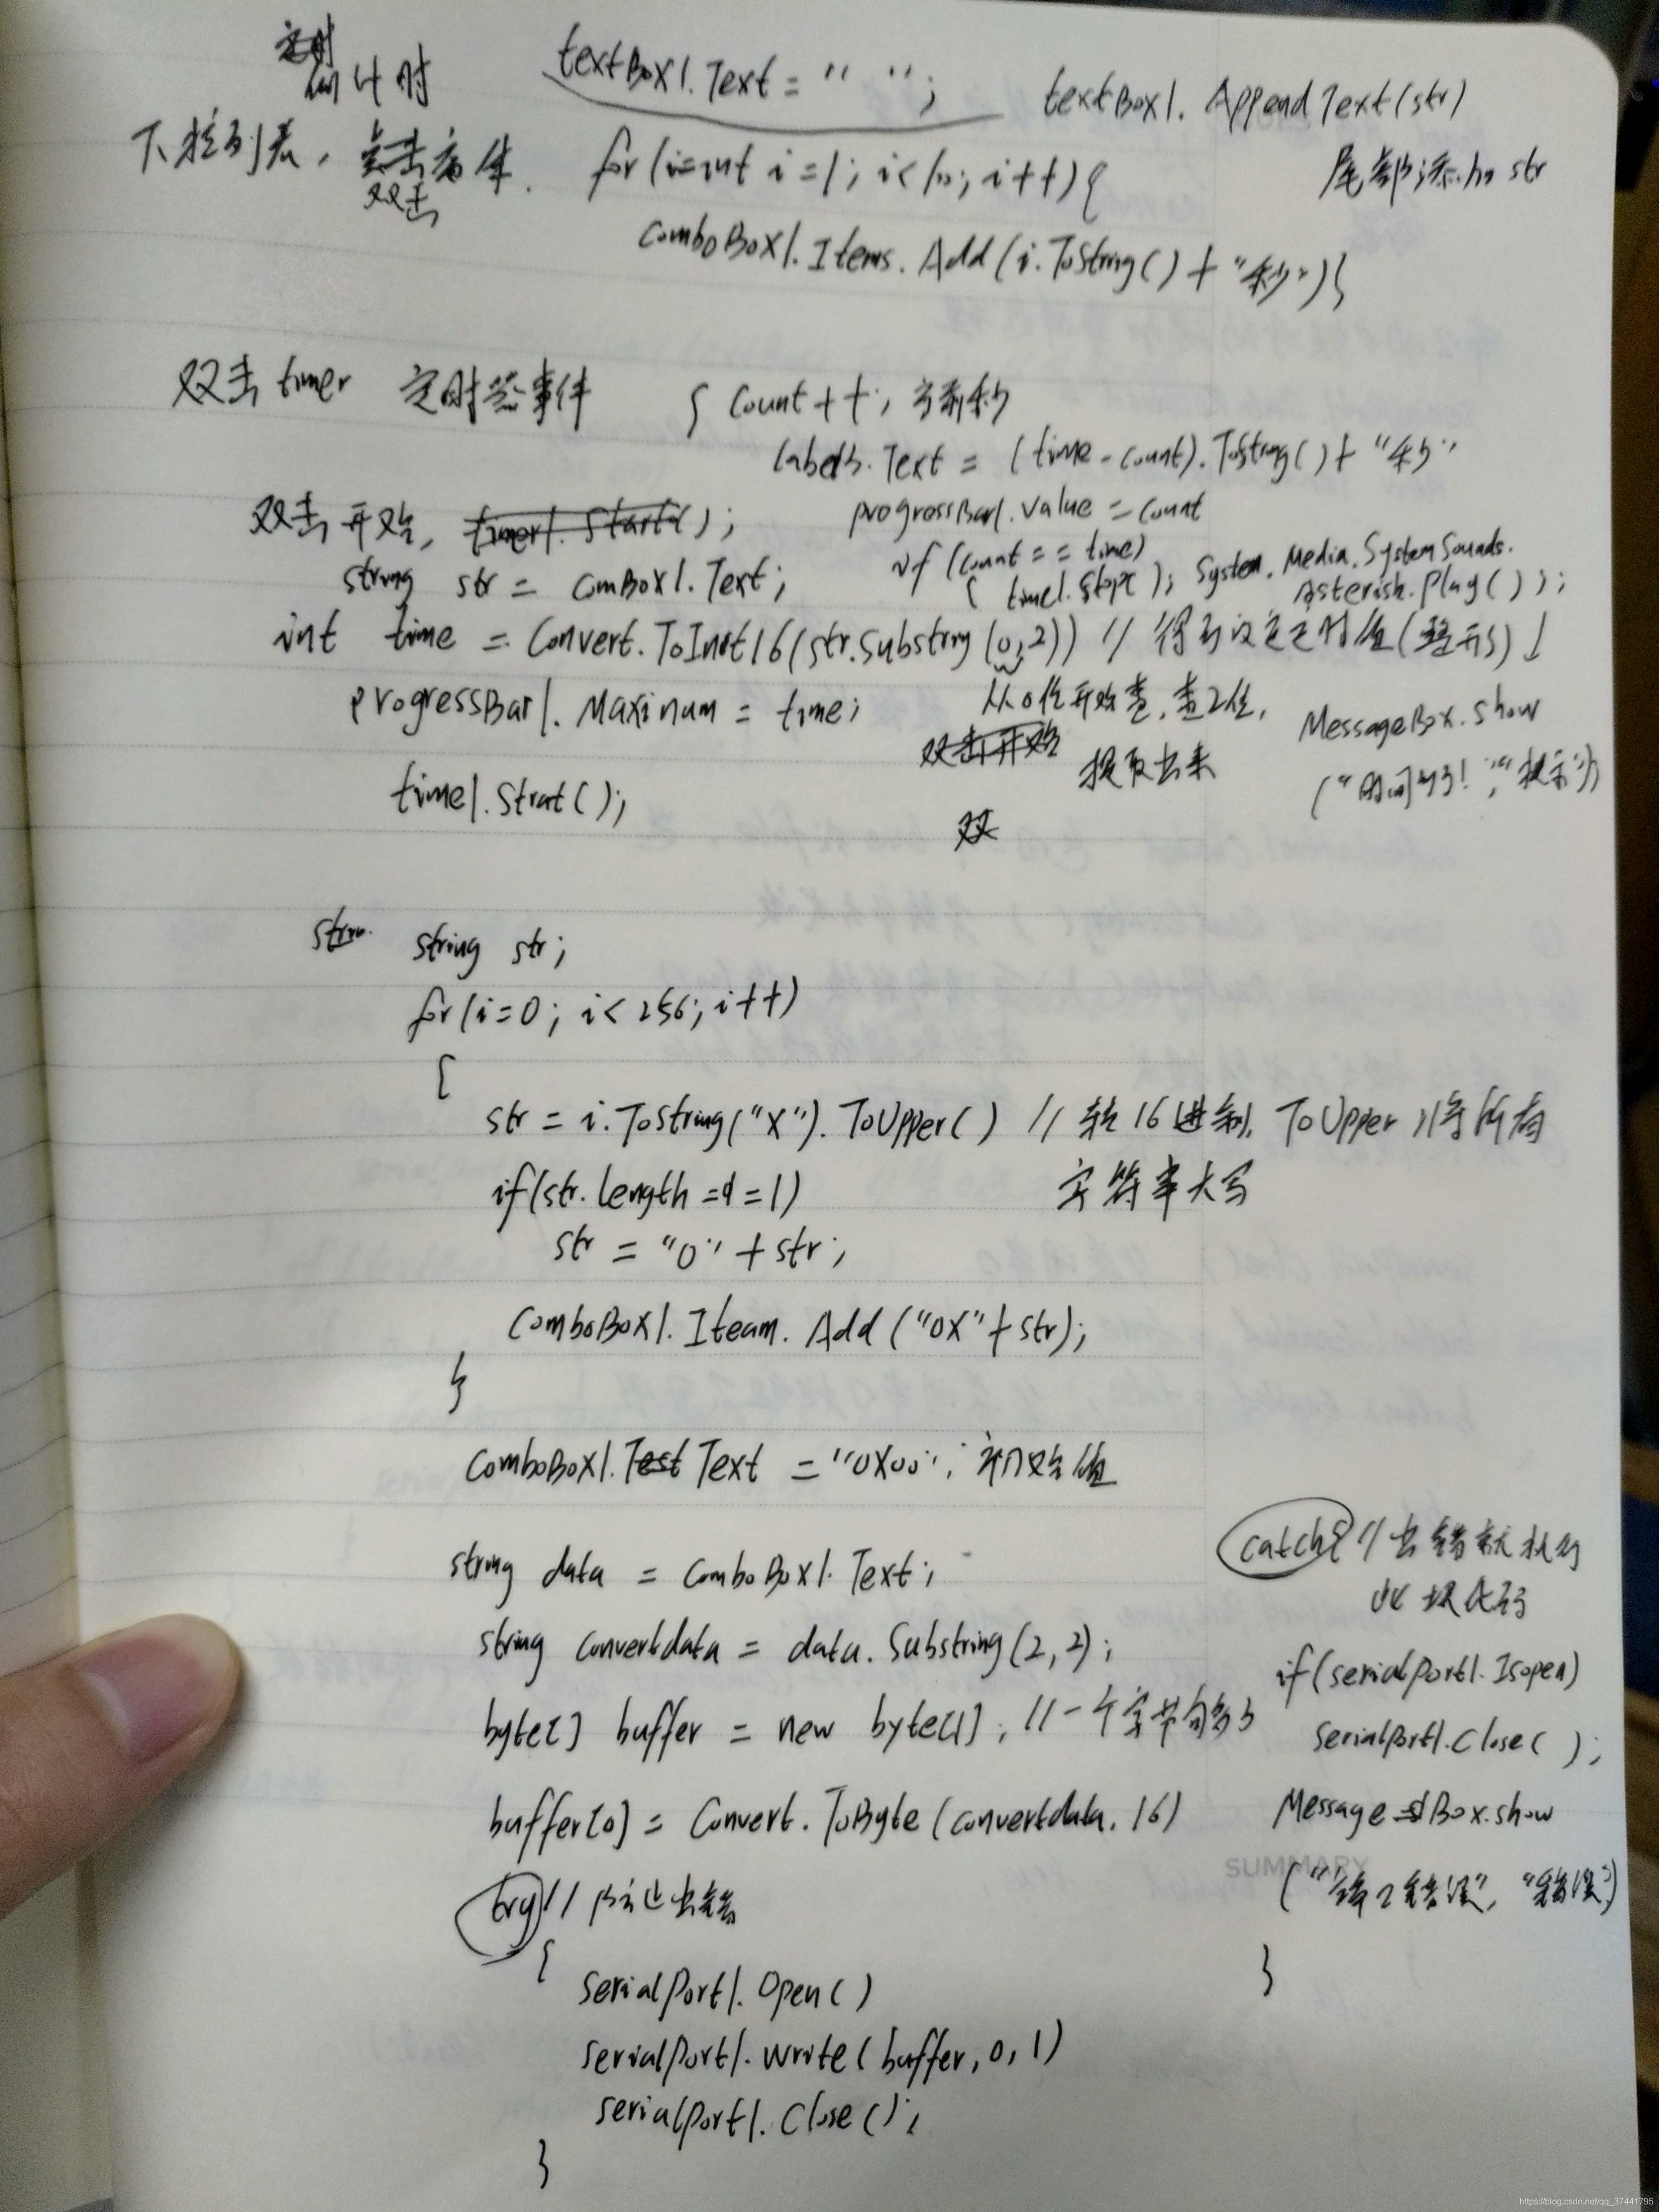 定时
倒计时
textBox1.Text = " ";
textBox1.AppendText(str)
尾部添加 str
下拉列表, 点击窗体.
双击
for(i=int i=1; i<100; i++){
comboBox1.Items.Add(i.ToString() + "秒")}
双击 timer 定时器事件
{ Count++, 当前秒
label3.Text = (time-count).ToString()+ "秒"
progressBar1.Value = count
if (count == time)
{ time1.Stop( ); System.Media.SystemSounds.
Asterisk.Play( ));
MessageBox.Show
("时间到了!","提示")
双击开始, timer1.Start( );
string str = comBox1.Text;
int time = Convert.ToInt16(str.Substring(0,2)) // 得到设定定时值(整形)
从0位开始查,查2位,
提取出来
双击开始
双
progressBar1.Maxinum = time;
time1.Strat( );
string str;
for(i=0; i<256; i++)
{
str = i.ToString("X").ToUpper( ) // 转16进制, ToUpper 将所有
字符串大写
if(str.length ==1)
str = "0" + str;
comboBox1.Iteam.Add("0X"+str);
}
comboBox1.Test Text = "0X00"; 初始值
string data = comboBox1.Text;
string convertdata = data.Substring(2,2);
byte[] buffer = new byte[1]; //一个字节够了
buffer[0] = Convert.ToByte(convertdata,16)
try // 防止出错
{
serialPort1.Open( )
serialPort1.Write( buffer, 0, 1)
serialPort1.Close( );
}
catch{ //出错就执行
此块代码
if(serialPort1.Isopen)
serialPort1.Close( );
Message Box.show
("错误", "错误")
}
SUMMARY
https://blog.csdn.net/qq_37441795